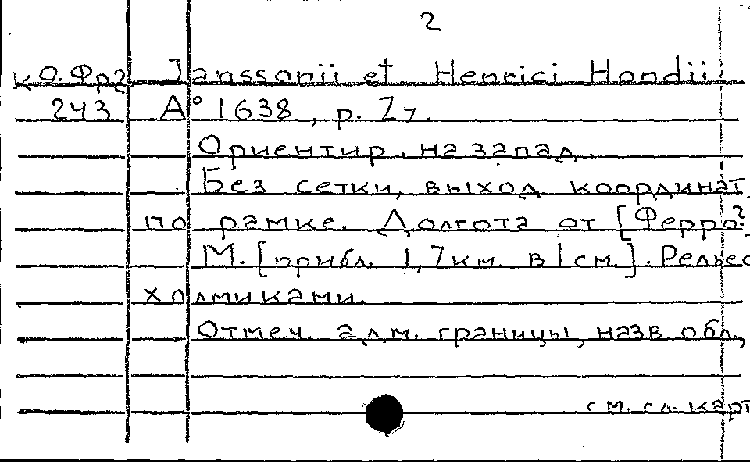 2
К О. Фр2 Janssonii et Henrici Hondii.
243 A° 1638, p. Zy.
Ориентир. на запад.
Без сетки, выход координат
по рамке. Долгота от [Ферро?]
М. [прибл. 1,7км. в 1см.]. Рельеф
холмиками.
Отмеч. адм. границы, назв. обл.,
см. сл. карт